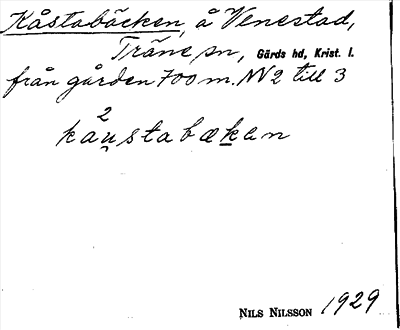 Kåstabäcken, å Venestad,
Träne sn, Gärds hd, Krist. l.
från gården 700 m. NV 2 till 3
2
kau̯stabæken
NILS NILSSON 1929